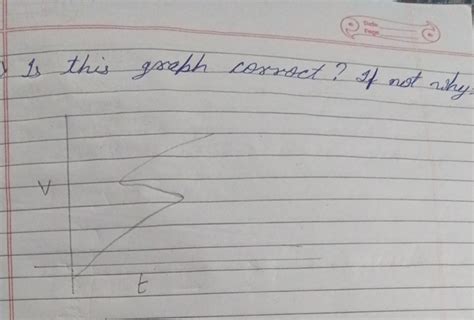 Date
Page
Is this graph correct? If not why.
V
t